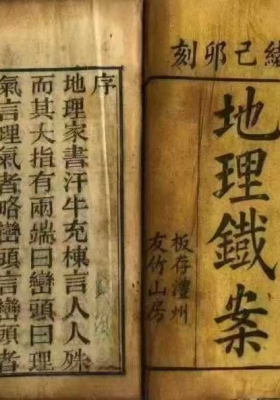 緒己卯刻
地理鐵案
板存澧州
友竹山房
序
地理家書汗牛充棟言人人殊
而其大指有兩端曰巒頭曰理
氣言理氣者略巒頭言巒頭者